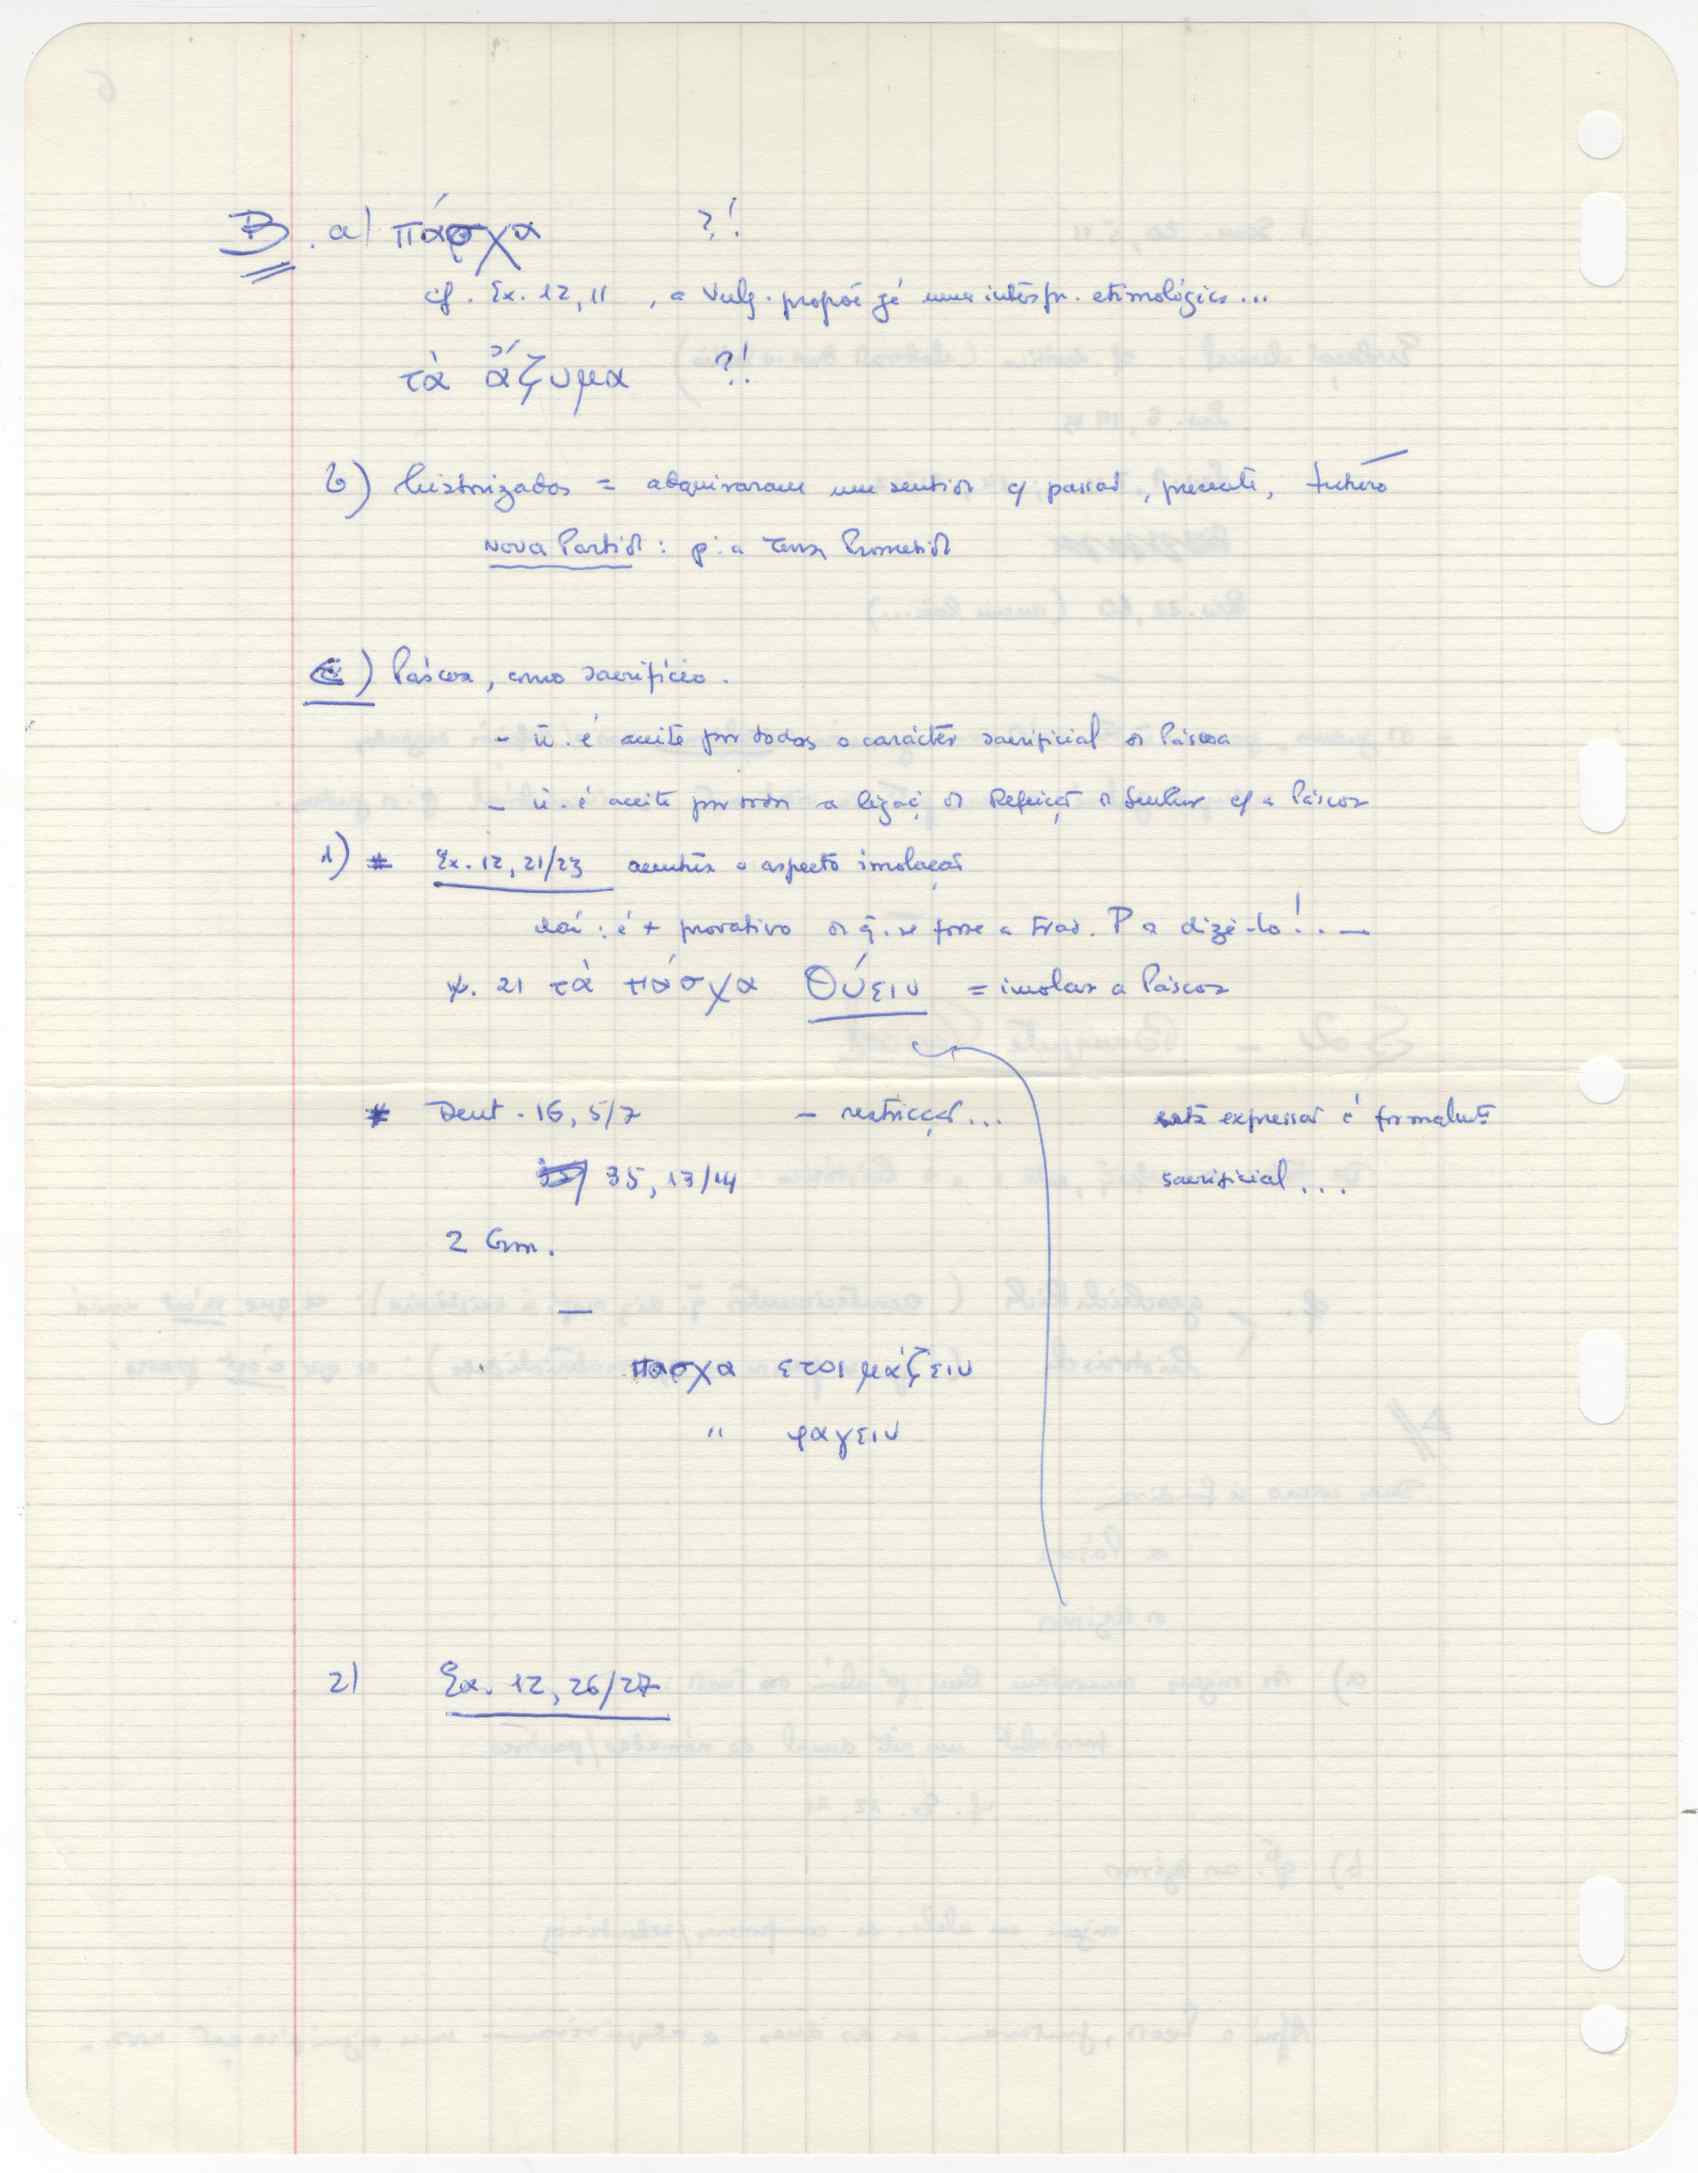 B. a) πάσχα ?!
cf. Ex. 12, 11 , a Vulg. propõe já uma interpr. etimológica...
τὰ ἄζυμα ?!
b) historizados = adquiriram um sentido c/ passado, presente, futuro
Nova Partida: p: a Terra Prometida
C) Páscoa, como sacrifício.
- ñ. é aceite por todos o carácter sacrificial da Páscoa
- ñ. é aceite por todos a ligaç da Refeição do Senhor c/ a Páscoa
1) # Ex. 12, 21/23 acentua o aspecto imolação
daí: é + provativo do q̃. se fosse a Trad. P a dizê-lo! . —
v. 21 τὰ πάσχα θύειν = imolar a Páscoa
# Deut. 16, 5/7 - restricção... esta expressão é formalmte
35, 13/14 sacrificial...
2 Crón.
—
πασχα ετοιμάζειν
" φαγειν
2) Ex. 12, 26/27